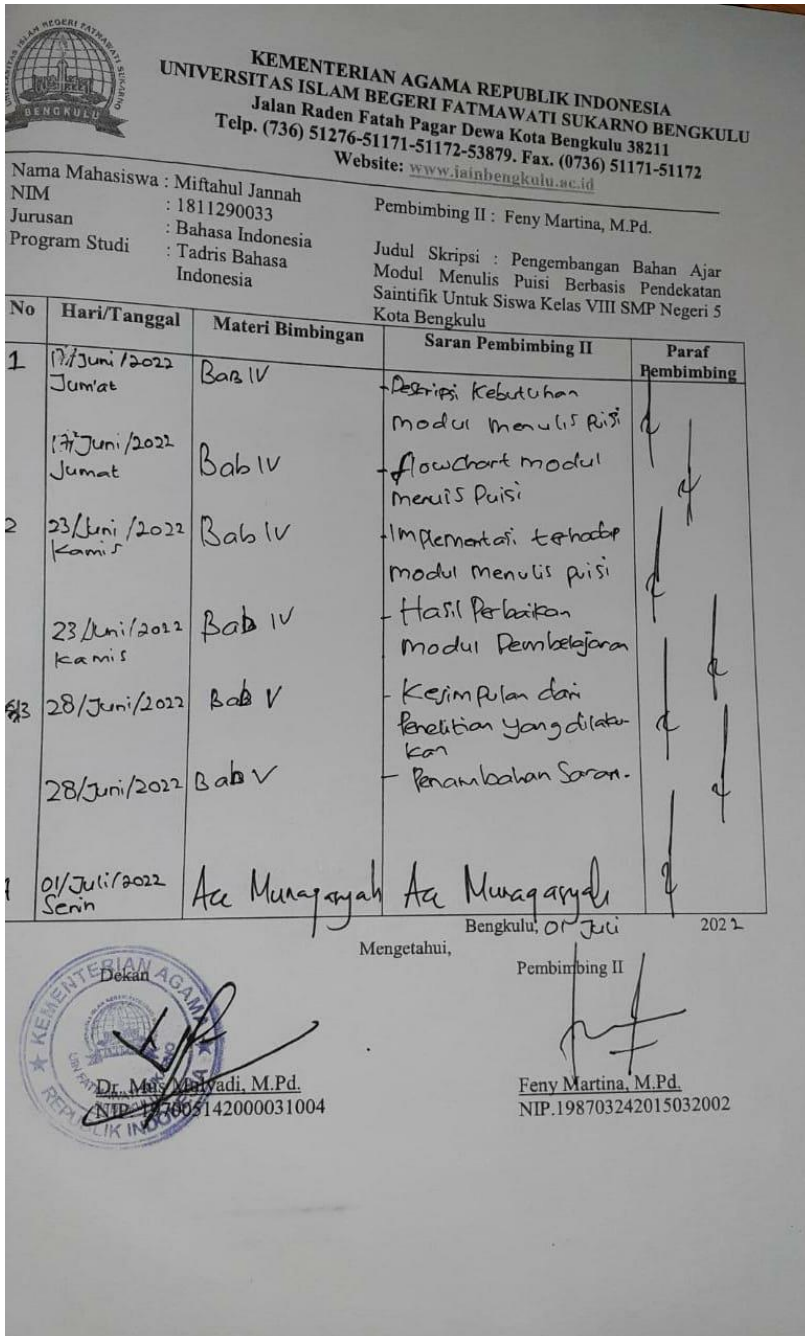 UNIVERSITAS ISLAM NEGERI FATMAWATI SUKARNO
BENGKULU
KEMENTERIAN AGAMA REPUBLIK INDONESIA
UNIVERSITAS ISLAM BEGERI FATMAWATI SUKARNO BENGKULU
Jalan Raden Fatah Pagar Dewa Kota Bengkulu 38211
Telp. (736) 51276-51171-51172-53879. Fax. (0736) 51171-51172
Website: www.iainbengkulu.ac.id
Nama Mahasiswa : Miftahul Jannah
NIM : 1811290033
Jurusan : Bahasa Indonesia
Program Studi : Tadris Bahasa
Indonesia
Pembimbing II : Feny Martina, M.Pd.
Judul Skripsi : Pengembangan Bahan Ajar
Modul Menulis Puisi Berbasis Pendekatan
Saintifik Untuk Siswa Kelas VIII SMP Negeri 5
Kota Bengkulu
No Hari/Tanggal Materi Bimbingan Saran Pembimbing II Paraf
Pembimbing
1 17/Juni/2022 Bab IV - Deskripsi Kebutuhan
Jum'at modul menulis Puisi
17/Juni/2022 Bab IV - flowchart modul
Jumat menuis Puisi
2 23/Juni/2022 Bab IV - Implementasi terhadap
Kamis modul menulis puisi
23/Juni/2022 Bab IV - Hasil Perbaikan
Kamis modul Pembelajaran
3 28/Juni/2022 Bab V - Kesimpulan dari
Penelitian yang dilaku-
kan
28/Juni/2022 Bab V - Penambahan Saran.
01/Juli/2022 Acc Munaqasyah Acc Munaqasyah
Senin
Bengkulu, 01 Juli 2022
Mengetahui,
Dekan Pembimbing II
KEMENTERIAN AGAMA
REPUBLIK INDONESIA
Dr. Mus Mulyadi, M.Pd. Feny Martina, M.Pd.
NIP. 197005142000031004 NIP.198703242015032002